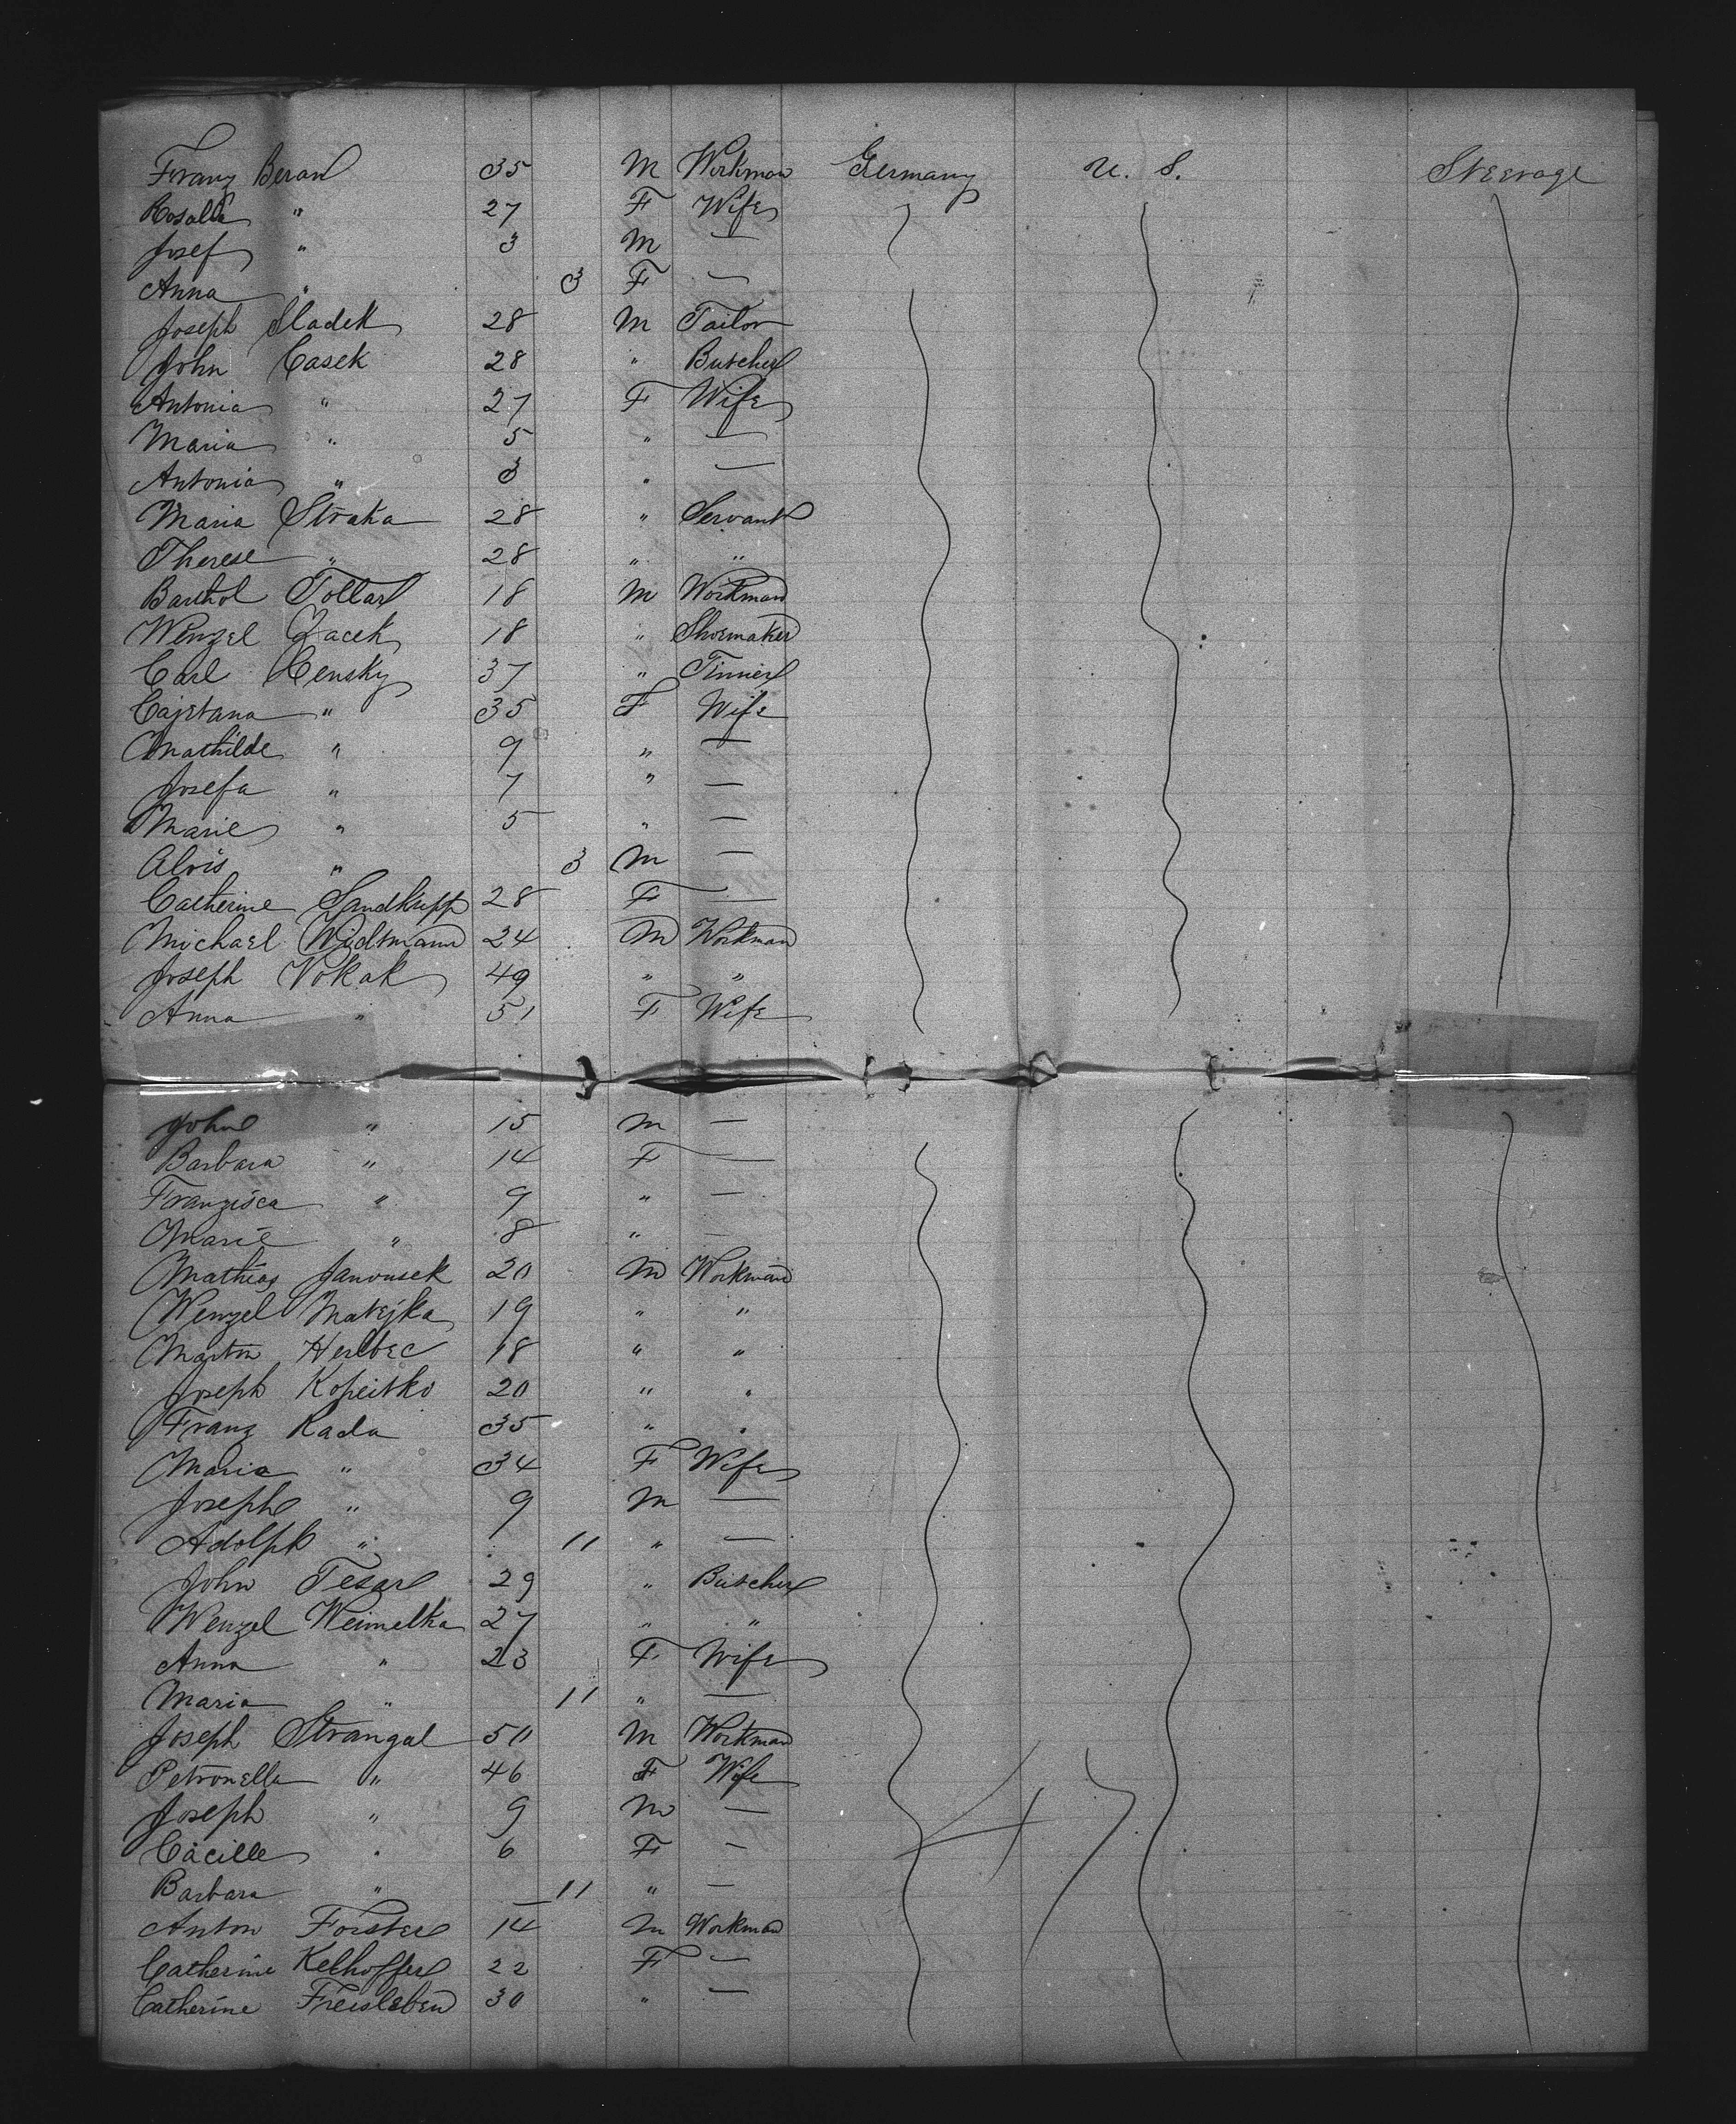 Franz Beran 35 M Workman Germany U. S. Steerage
Rosalia " 27 F Wife
Josef " 3 M —
Anna " 3 F —
Joseph Sladek 28 M Tailor
John Casek 28 " Butcher
Antonia " 27 F Wife
Maria " 5 " —
Antonia " 3 " —
Maria Straka 28 " Servant
Therese " 28 " "
Barthol Tollar 18 M Workman
Wenzel Zacek 18 " Shoemaker
Carl Censky 37 " Tinner
Cajetana " 35 F Wife
Mathilde " 9 " —
Josefa " 7 " —
Marie " 5 " —
Alois " 3 M —
Catherine 28 F —
Michael Widtmann 24 M Workman
Joseph Vokak 49 " "
Anna " 51 F Wife
John " 15 M —
Barbara " 14 F —
Franzisca " 9 " —
Marie " 8 " —
Mathias Janousek 20 M Workman
Wenzel Matejka 19 " "
Martin Herbec 18 " "
Joseph Kopeitko 20 " "
Franz Kada 35 " "
Maria " 34 F Wife
Joseph " 9 M —
Adolph " 11 " —
John Tesar 29 " Butcher
Wenzel Weimelka 27 " "
Anna " 23 F Wife
Maria " 11 " —
Joseph Strangal 50 M Workman
Petronella " 46 F Wife
Joseph " 9 M —
Cäcilie " 6 F —
Barbara " 11 " —
Anton Forster 14 M Workman
Catherine Kelhoffer 22 F —
Catherine Freisleben 30 " —
47